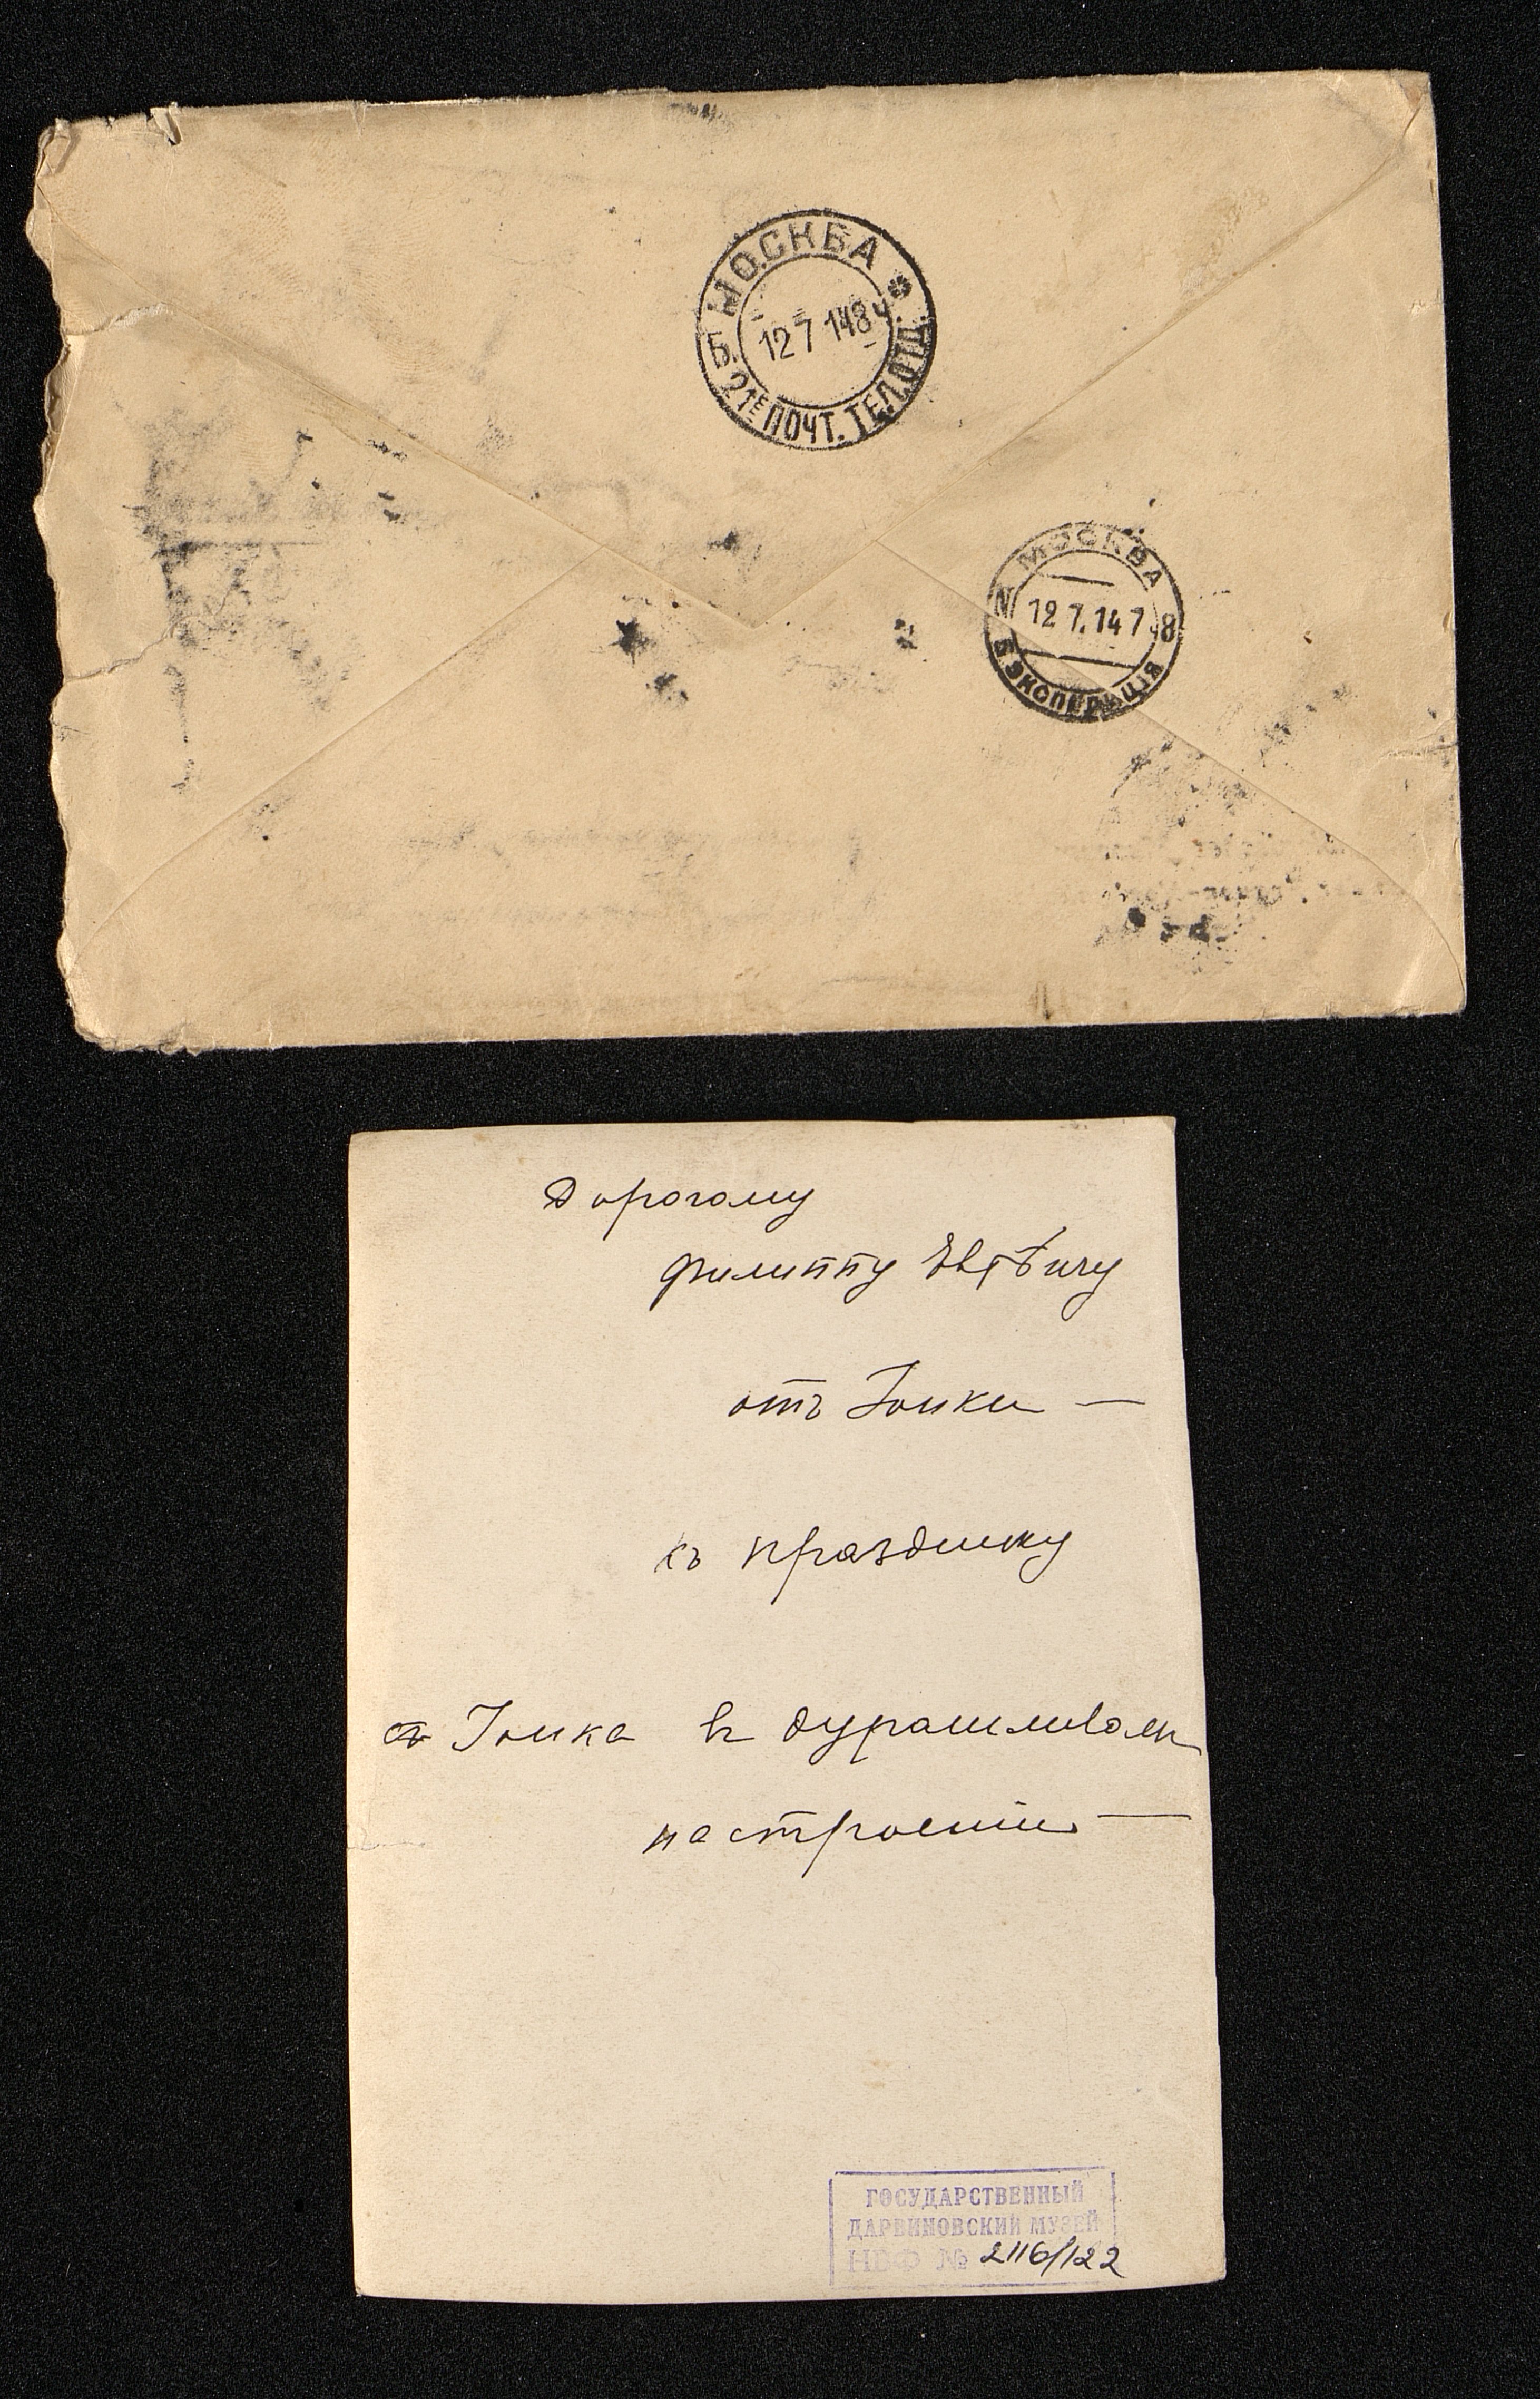 МОСКВА
12 7 14 8 ч.
Б. 21Е ПОЧТ. ТЕЛ. ОТД.
МОСКВА
12 7.14 7 8
5 ЭКСПЕДИЦІЯ
Дорогому
Филиппу Евгѣичу
отъ Іоики —
къ празднику
Іоика въ дурашливомъ
настроеніи —
ГОСУДАРСТВЕННЫЙ
ДАРВИНОВСКИЙ МУЗЕЙ
НВФ № 2116/122